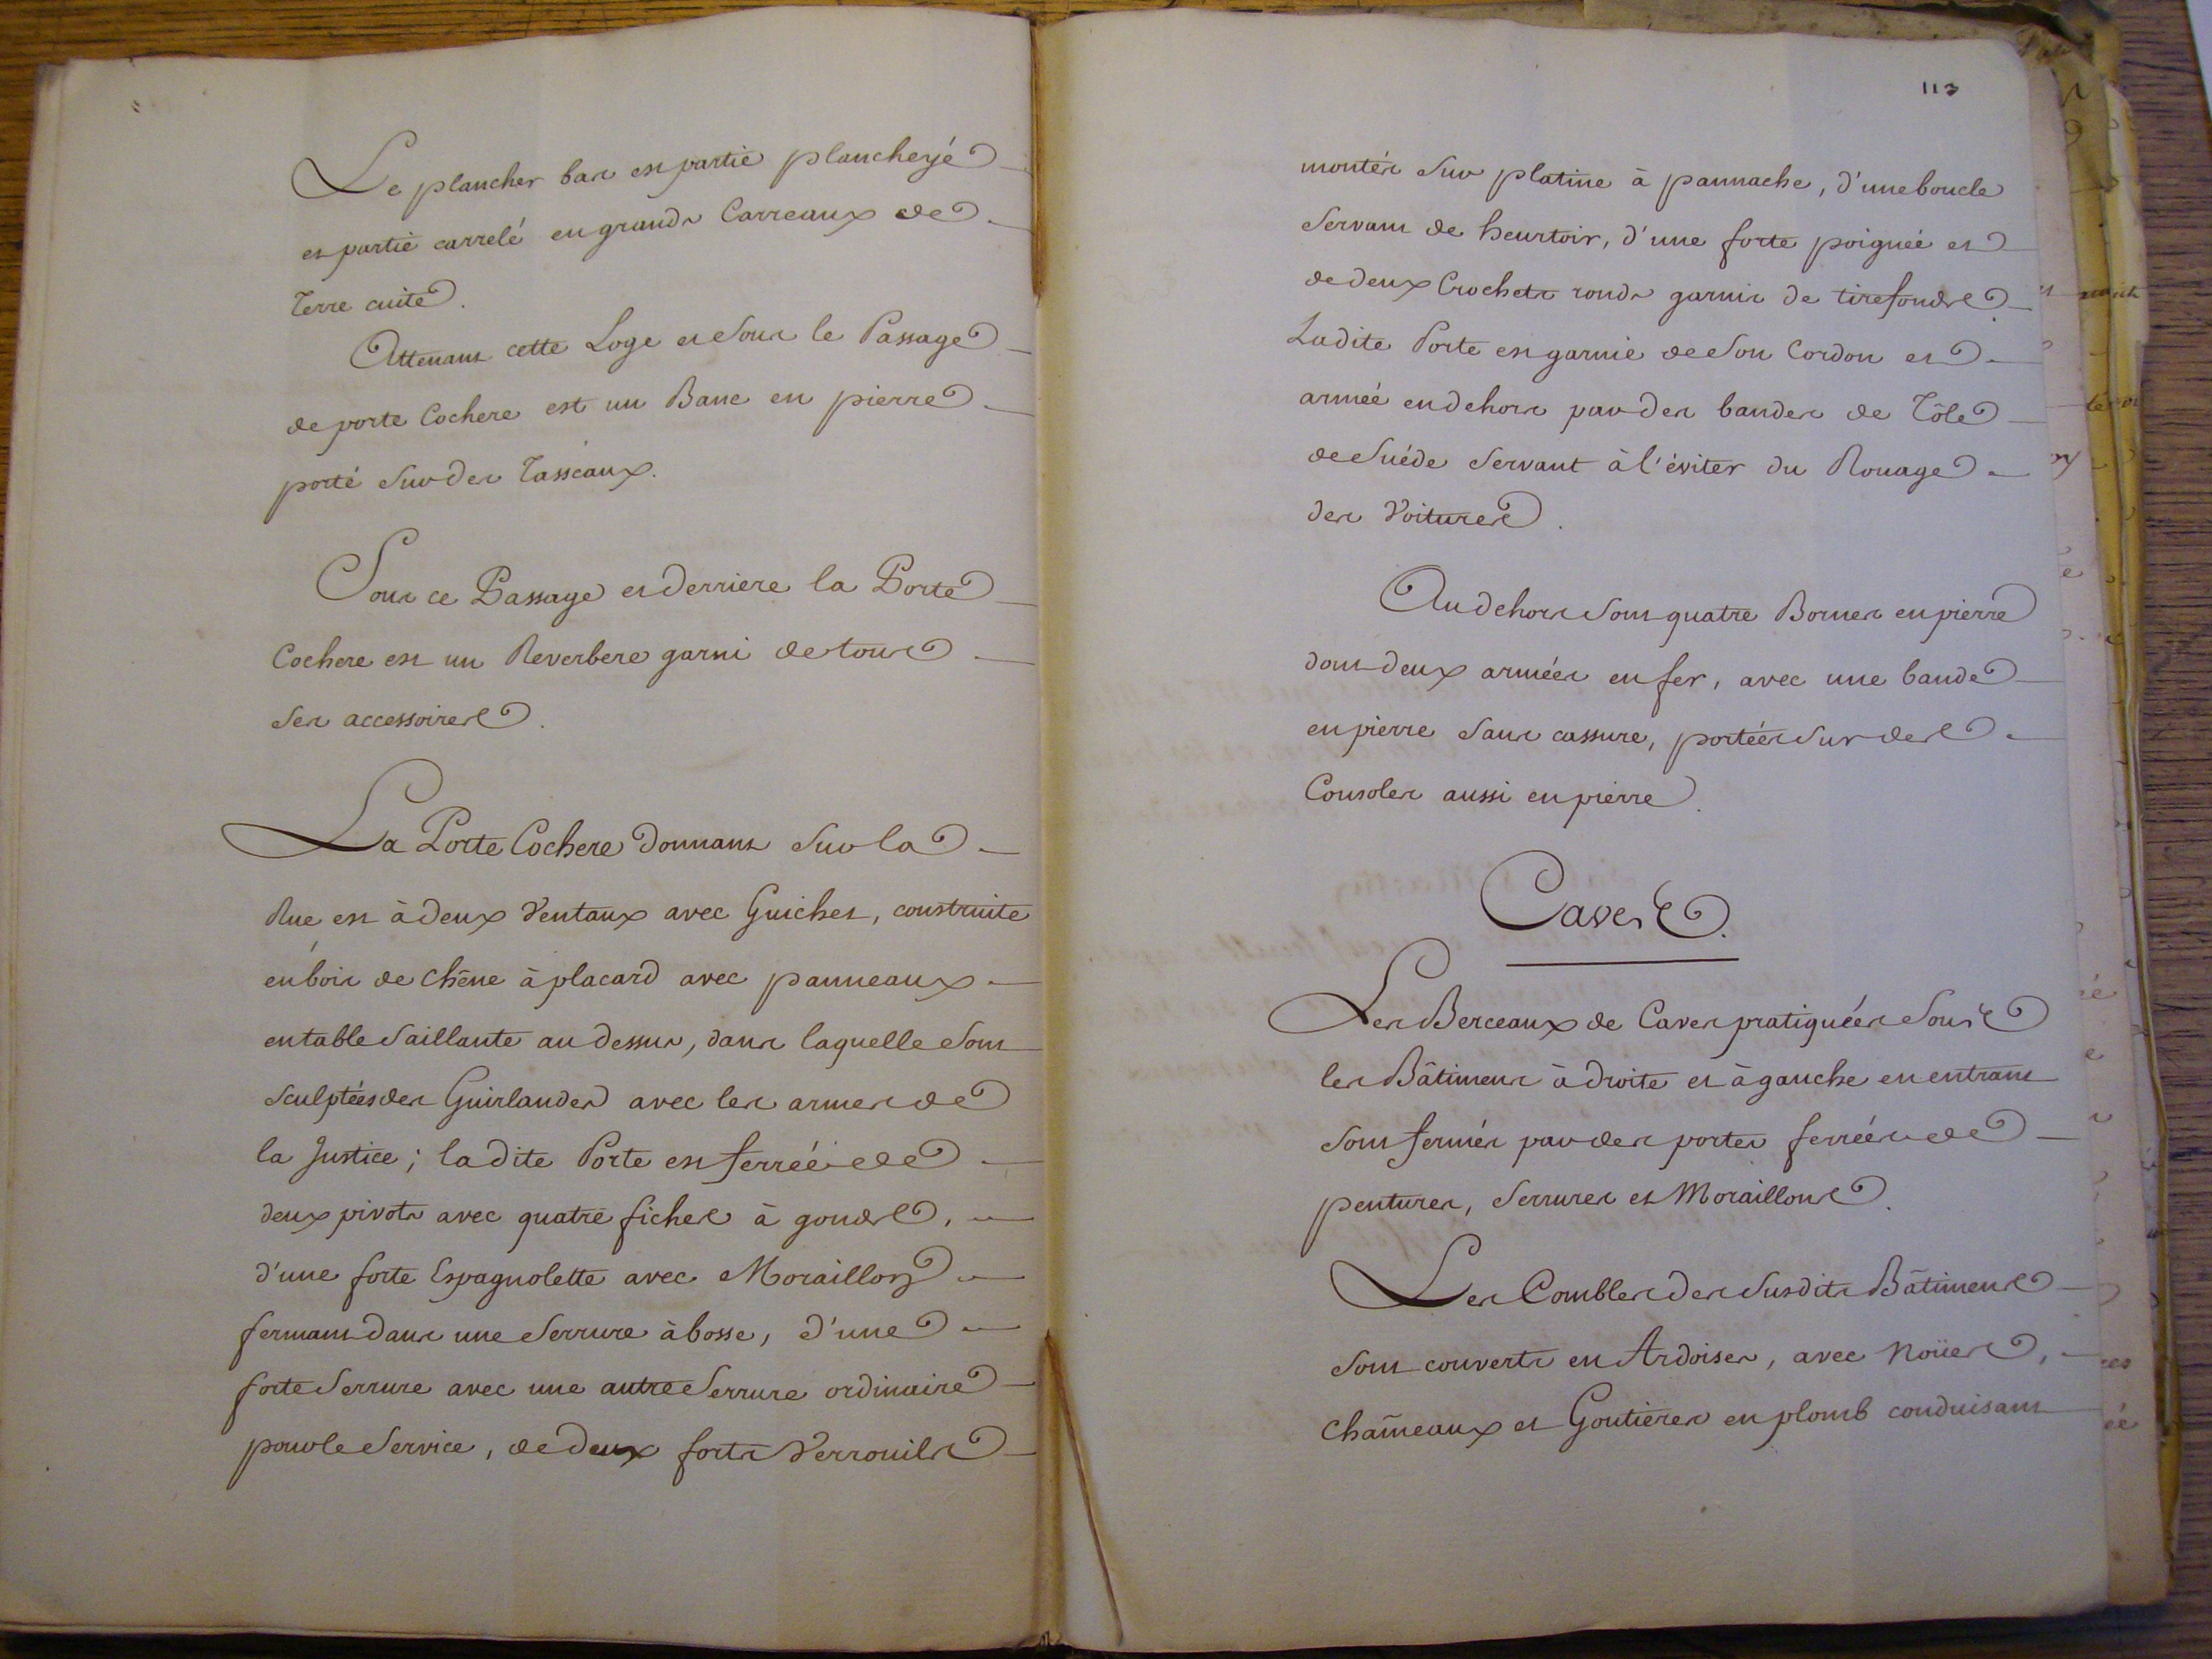 Le plancher bas est partie plancheyé
et partie carrelé en grands Carreaux de
Terre cuite.
Attenant cette Loge et Sous le Passage
de porte Cochere est un Banc en pierre
porté Sur des Tasseaux.
Sous ce Passage et derriere la Porte
Cochere est un Reverbere garni de tous
Ses accessoires.
La Porte Cochere donnant Sur la
Rue est à deux Ventaux avec Guichet, construite
en bois de Chêne à placard avec panneaux
en table Saillante au dessus, dans laquelle Sont
Sculptées des Guirlandes avec les armes de
la Justice ; la dite Porte est ferrée de
deux pivots avec quatre fiches à gonds,
d'une forte Espagnolette avec Moraillon
fermant dans une Serrure à bosse, d'une
forte Serrure avec une autre Serrure ordinaire
pour le Service, de deux forts Verrouils
113
montés Sur platine à pannache, d'une boucle
Servant de heurtoir, d'une forte poignée et
de deux Crochets ronds garnis de tirefonds.
Ladite Porte est garnie de Son Cordon et
armée en dehors par des bandes de Tôle
de Suéde Servant à l'éviter du Rouage
des Voitures.
Au dehors Sont quatre Bornes en pierre
dont deux armées en fer, avec une bande
en pierre Sans cassure, portées Sur des
Consoles aussi en pierre.
Caves.
Les Berceaux de Caves pratiquées Sous
les Bâtimens à droite et à gauche en entrant
Sont fermés par des portes ferrées de
pentures, Serrures et Moraillons.
Les Combles des Susdits Bâtimens
Sont couverts en Ardoises, avec Noües,
Chaîneaux et Goutieres en plomb conduisant